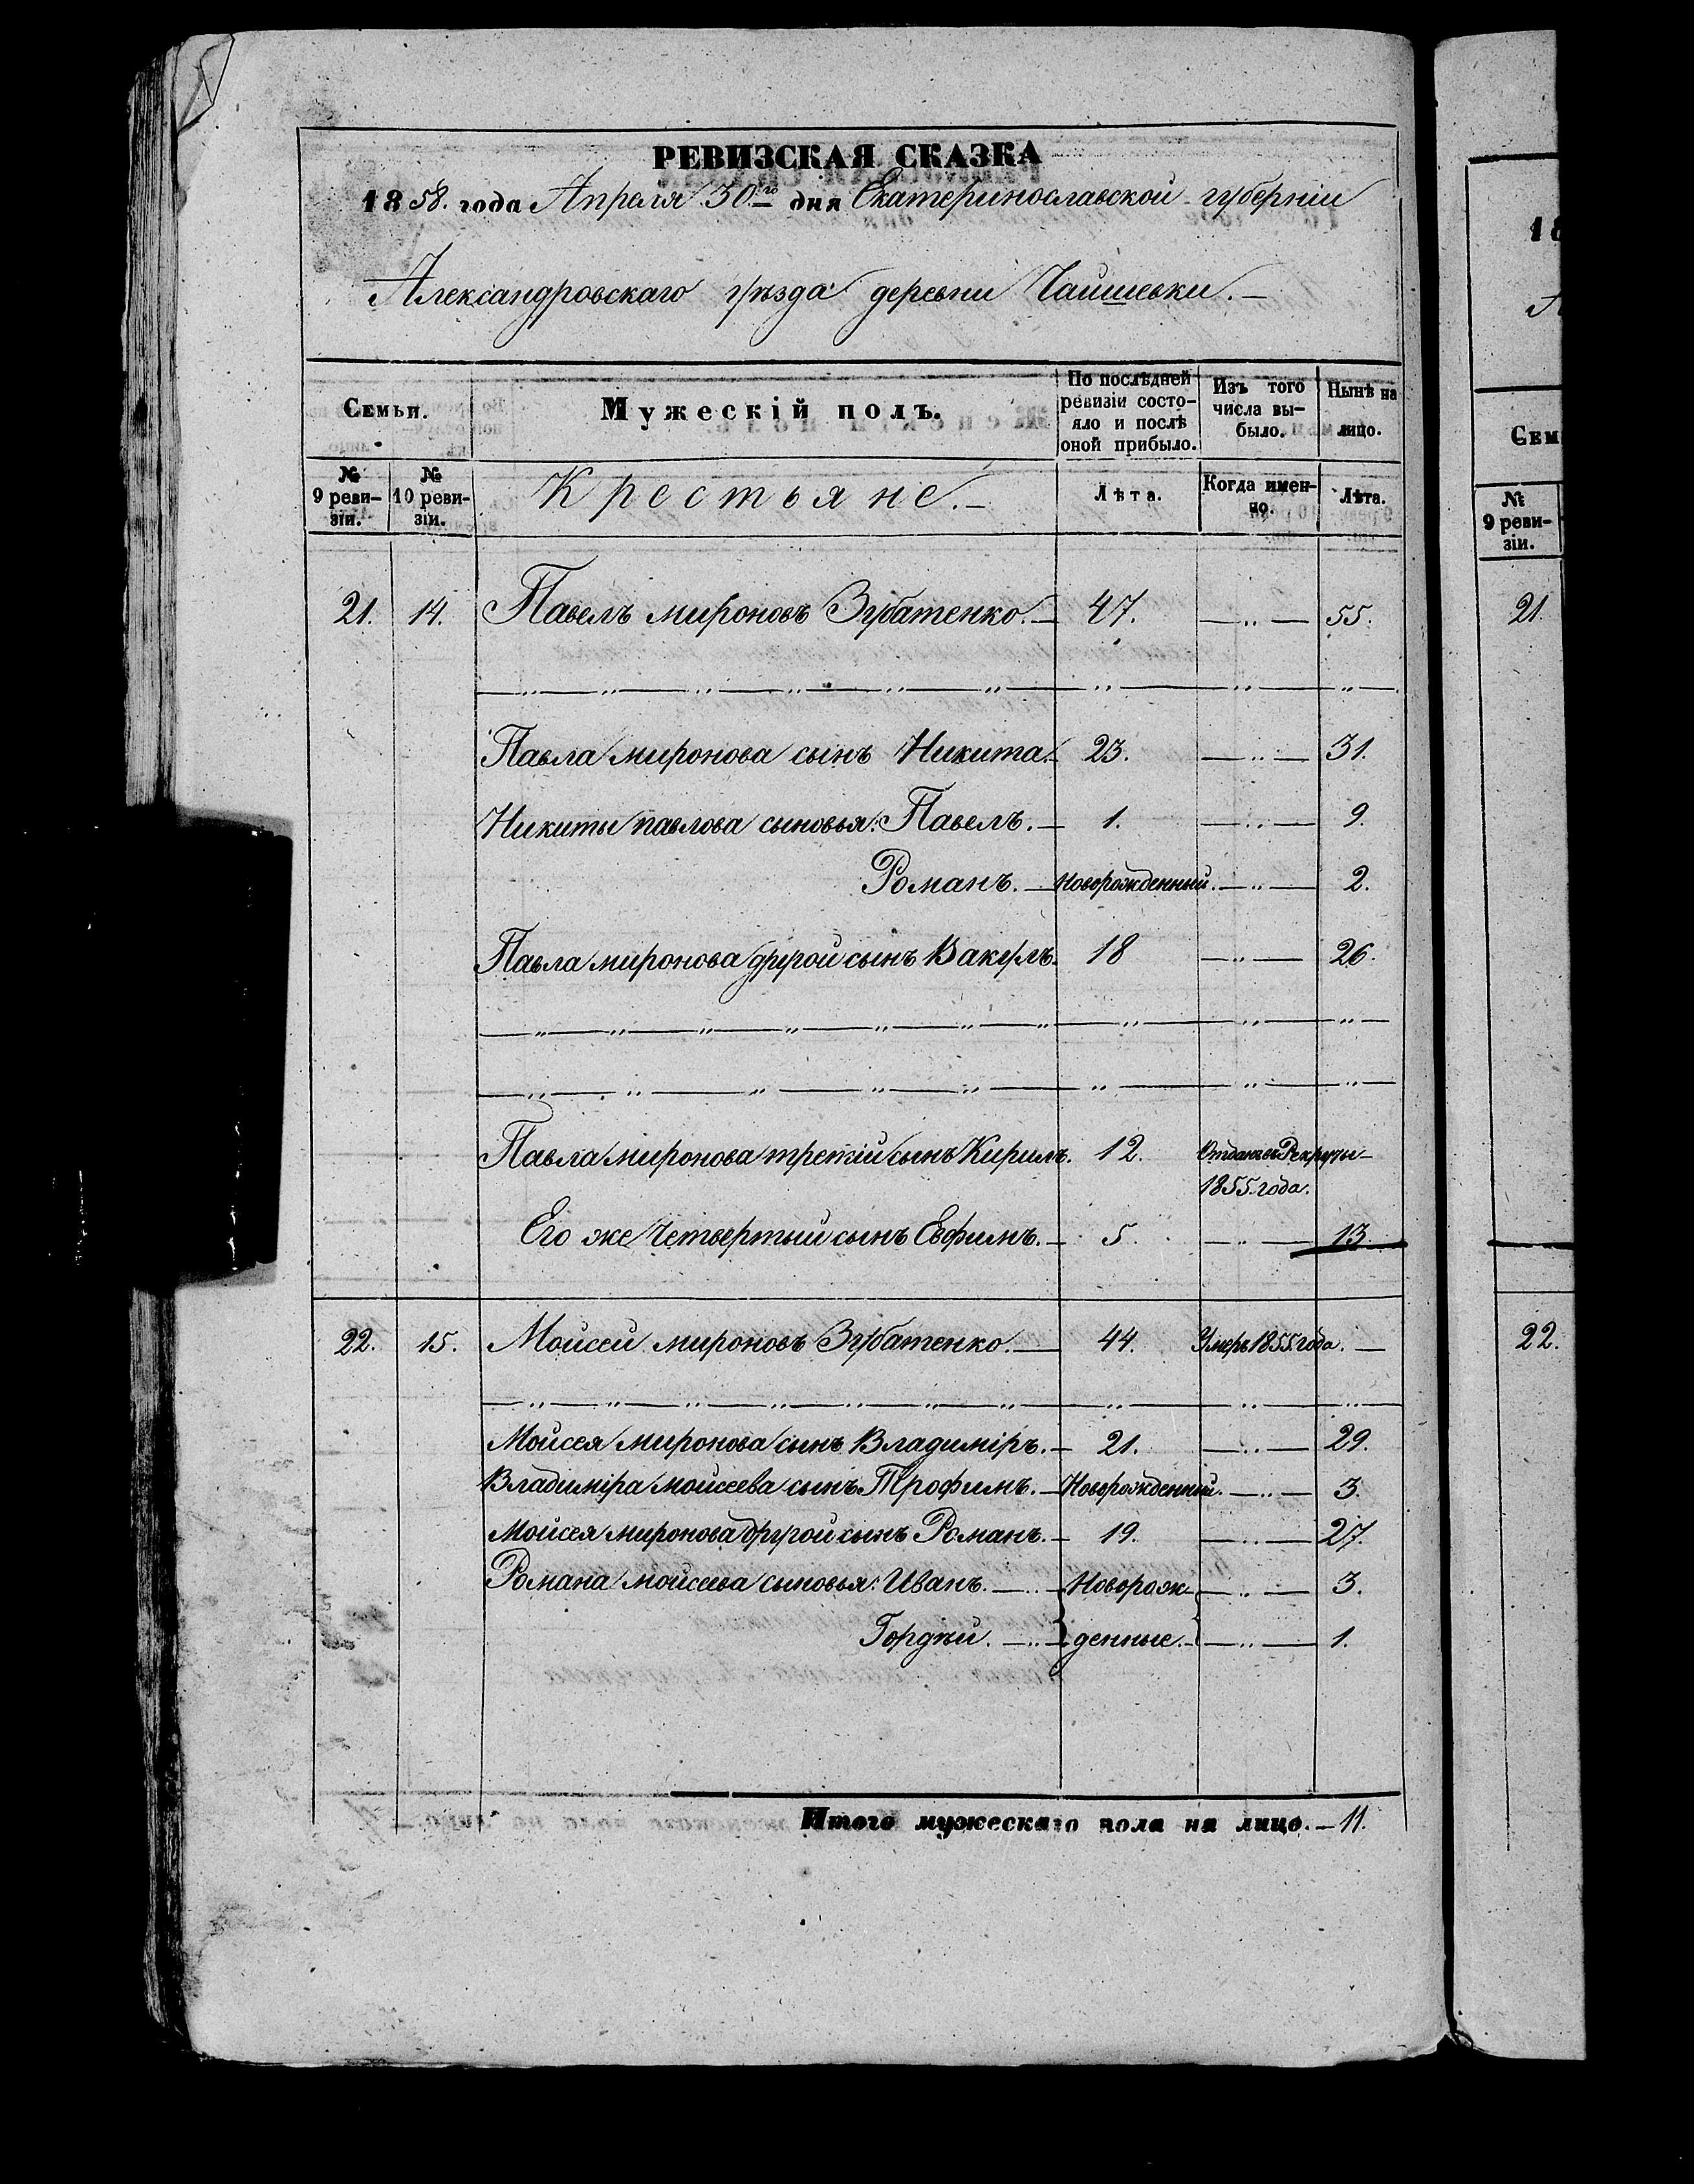 РЕВИЗСКАЯ СКАЗКА
1858. года Апреля 30.го дня Екатеринославской губерніи
Александровскаго уѣзда деревни
Семьи.
Мужескій полъ.
По послѣдней ревизіи состояло и послѣ оной прибыло.
Изъ того числа выбыло.
Нынѣ на лицо.
№ 9 ревизіи.
№ 10 ревизіи.
Крестьяне.
Лѣта.
Когда именно.
Лѣта.
21. 14. Павелъ мироновъ Зубатенко. 47. 55.
Павла миронова сынъ Никита. 23. 31.
Никиты павлова сыновья: Павелъ. 1. 9.
Романъ. Новорожденный. 2.
Павла миронова другой сынъ Вакулъ. 18 26.
Павла миронова третій сынъ Кирилъ. 12. Отданъ въ Рекруты
1855. года.
Его же Четвертый сынъ Евфимъ. 5. 13.
22. 15. Моисей мироновъ Зубатенко. 44. Умеръ 1855. года.
Моисея миронова сынъ Владиміръ. 21. 29.
Владиміра моисеева сынъ Трофимъ. Новорожденный. 3.
Моисея миронова другой сынъ Романъ. 19. 27.
Романа моисеева сыновья: Иванъ. Новорож- 3.
Гордѣй. денные. 1.
Итого мужескаго пола на лицо. 11.
18
Сем
№ 9 ревизіи.
21.
22.